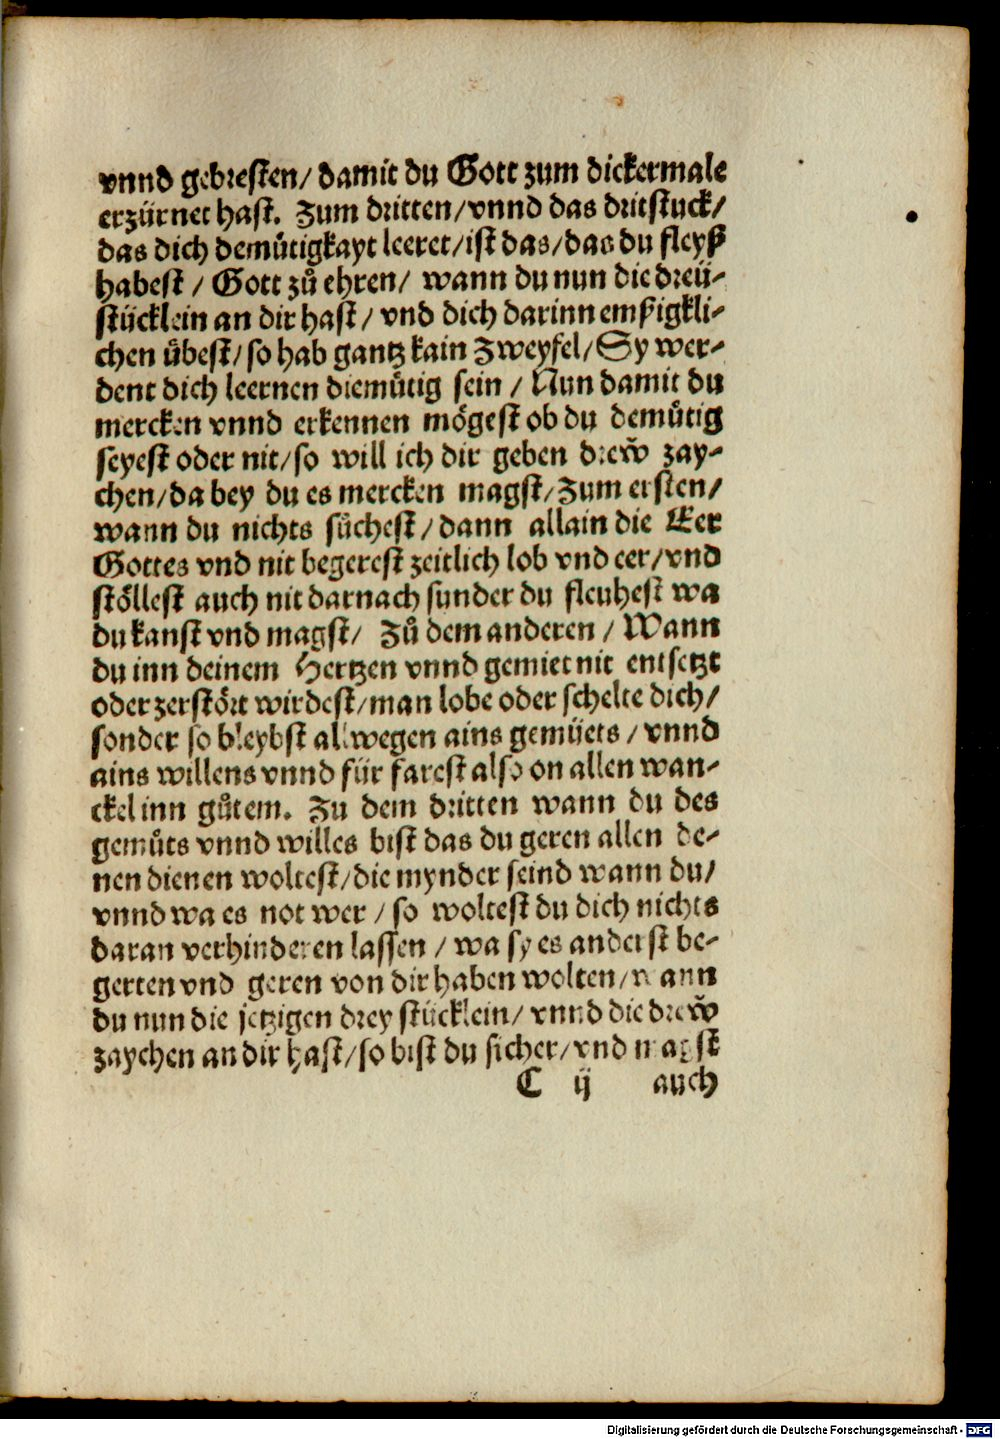 vnnd gebresten/ damit du Gott zum dickermale
erzürnet hast. Zum dritten/vnnd das dritstuck/
das dich demuͤtigkayt leeret/ist das/das du fleyß
habest / Gott zuͦ ehren/ wann du nun die dreü-
stücklein an dir hast/ vnd dich darinn emßigkli-
chen uͤbest/so hab gantz kain Zweyfel/Sy wer-
dent dich leernen diemuͤtig sein / Nun damit du
mercken vnnd erkennen moͤgest ob du demuͤtig
seyest oder nit/so will ich dir geben drew̃ zay-
chen/da bey du es mercken magst/Zum ersten/
wann du nichts suͤchest/dann allain die Eer
Gottes vnd nit begerest zeitlich lob vnd eer/vnd
stoͤllest auch nit darnach sunder du fleuhest wa
du kanst vnd magst/ Zuͦ dem anderen / Wann
du inn deinem Hertzen vnnd gemiet nit entsetzt
oder zerstoͤrt wirdest/man lobe oder schelte dich/
sonder so bleybst allwegen ains gemüets / vnnd
ains willens vnnd für farest also on allen wan-
ckel inn guͦtem. Zu dem dritten wann du des
gemuͤts vnnd willes bist das du geren allen de-
nen dienen woltest/die mynder seind wann du/
vnnd wa es not wer / so woltest du dich nichts
daran verhinderen lassen / wa sy es anderst be-
gerten vnd geren von dir haben wolten/wann
du nun die jetzigen drey stücklein/ vnnd die drew̃
zaychen an dir hast/so bist du sicher/vnd magst
C ij auch
Digitalisierung gefördert durch die Deutsche Forschungsgemeinschaft - DFG